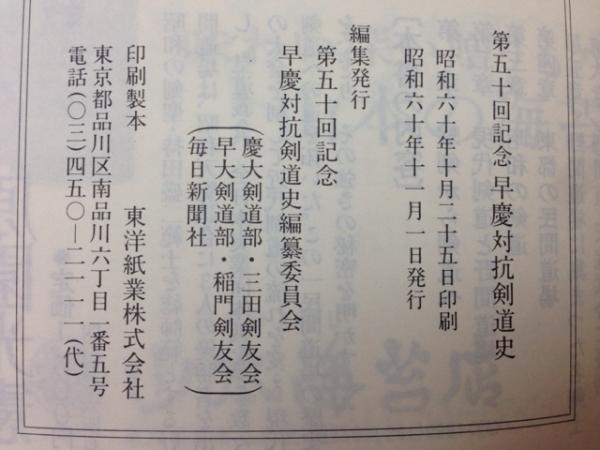 第五十回記念 早慶対抗剣道史
昭和六十年十月二十五日印刷
昭和六十年十一月一日発行
編集発行
第五十回記念
早慶対抗剣道史編纂委員会
(慶大剣道部・三田剣友会)
(早大剣道部・稲門剣友会)
毎日新聞社
印刷製本 東洋紙業株式会社
東京都品川区南品川六丁目一番五号
電話(〇三)四五〇―二一一一(代)